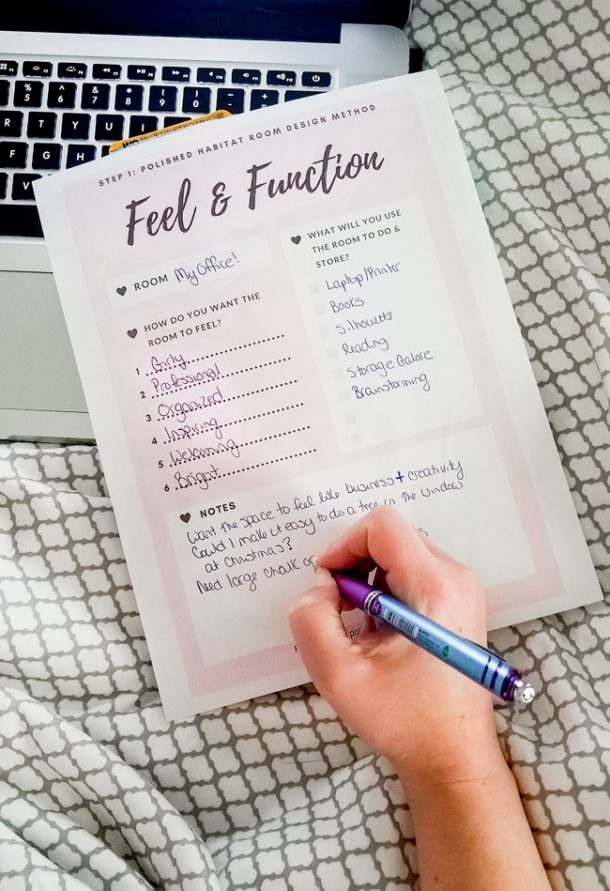 STEP 1: POLISHED HABITAT ROOM DESIGN METHOD
Feel & Function
ROOM My Office!
HOW DO YOU WANT THE
ROOM TO FEEL?
1 Girly
2 Professional
3 Organized
4 Inspiring
5 Welcoming
6 Bright
WHAT WILL YOU USE
THE ROOM TO DO &
STORE?
Laptop/Printer
Books
Silhouette
Reading
Storage Galore
Brainstorming
NOTES
Want the space to feel like business + creativity
Could I make it easy to do a tree in the window
at Christmas?
Need large chalk or
5 6 7 8 9 0
R T Y U I
F G H
V